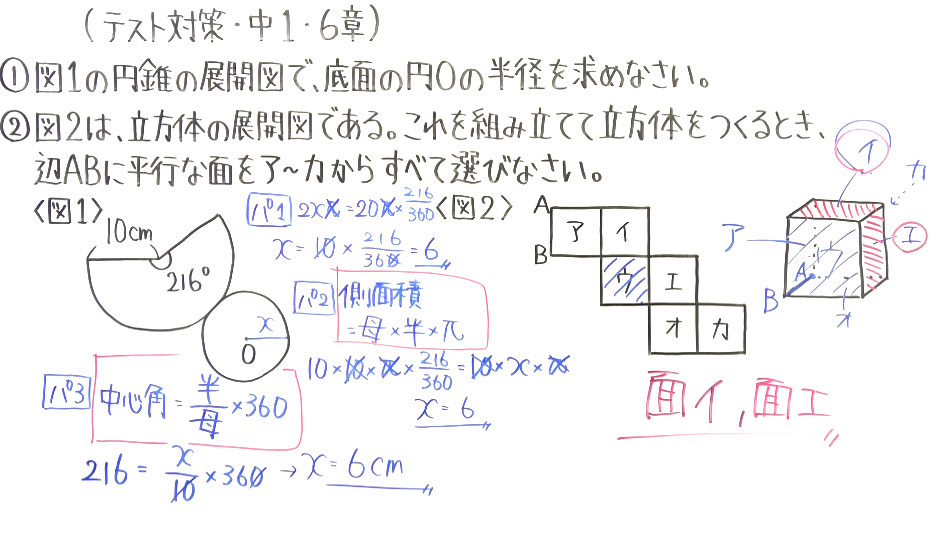 (テスト対策・中1・6章)
①図1の円錐の展開図で、底面の円Oの半径を求めなさい。
②図2は、立方体の展開図である。これを組み立てて立方体をつくるとき、
辺ABに平行な面をア~カからすべて選びなさい。
<図1>
10cm
216°
x
O
パ1 2πx = 20π × 216/360
x = 10 × 216/360 = 6
パ2 側面積
= 母 × 半 × π
10 × 10 × π × 216/360 = 10 × x × π
x = 6
パ3 中心角 = 半/母 × 360
216 = x/10 × 360 → x = 6cm
<図2>
A
B
ア イ
ウ エ
オ カ
イ
カ
ア
ウ
エ
A
B
オ
面イ, 面エ